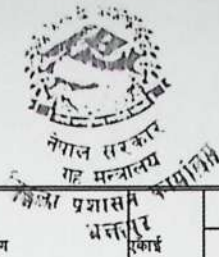 नेपाल सरकार
गृह मन्त्रालय
जिल्ला प्रशासन कार्यालय
ण
एकाई